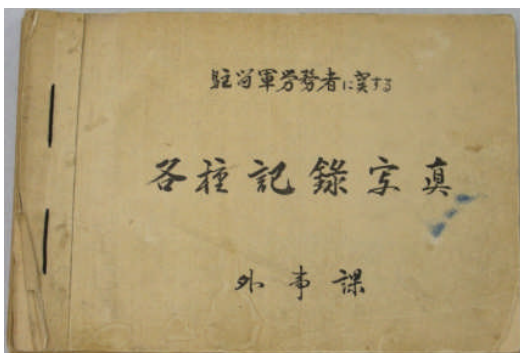 駐留軍労務者に関する
各種記録写真
外事課